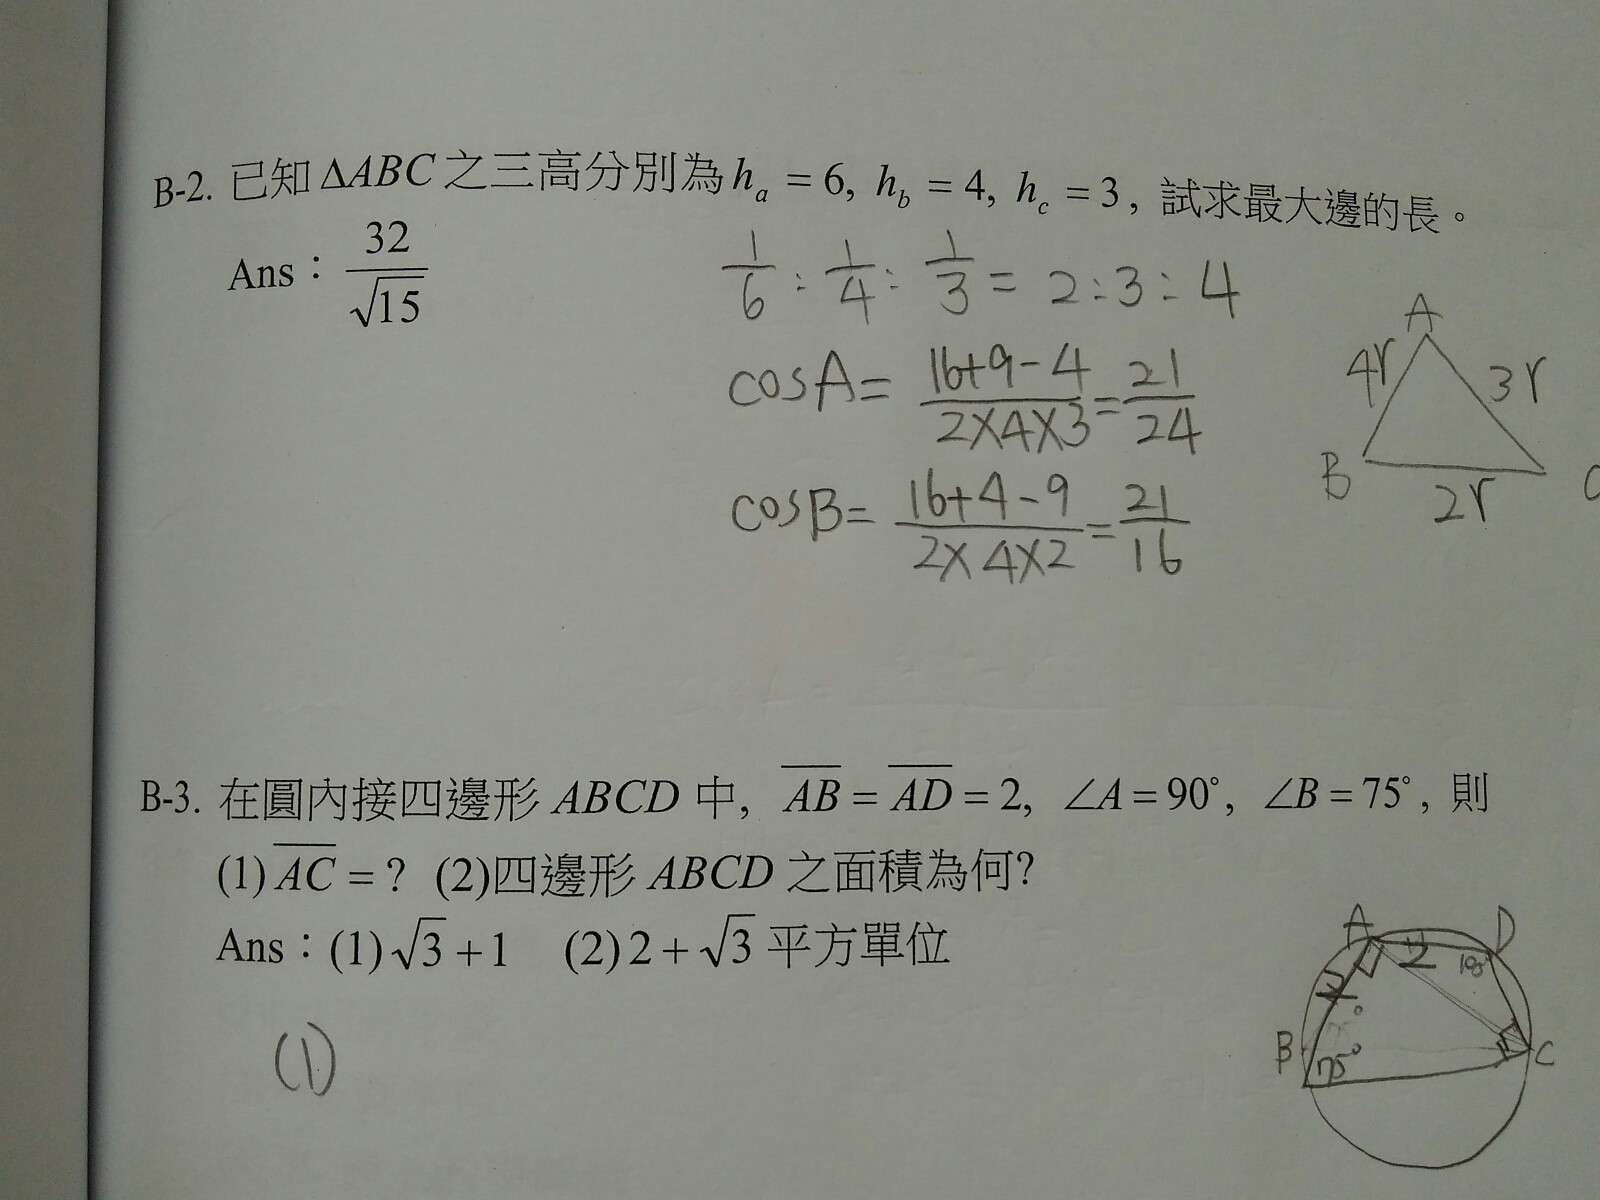 B-2. 已知 ΔABC 之三高分別為 hₐ = 6, h_b = 4, h_c = 3, 試求最大邊的長。
Ans：32/√15
1/6 : 1/4 : 1/3 = 2 : 3 : 4
cosA = (16+9-4)/(2×4×3) = 21/24
cosB = (16+4-9)/(2×4×2) = 21/16
A
4r 3r
B 2r C
B-3. 在圓內接四邊形 ABCD 中, A̅B̅ = A̅D̅ = 2, ∠A = 90°, ∠B = 75°, 則
(1) A̅C̅ = ? (2)四邊形 ABCD 之面積為何?
Ans：(1)√3+1 (2)2+√3 平方單位
(1)
A D
2 2
B 75° C